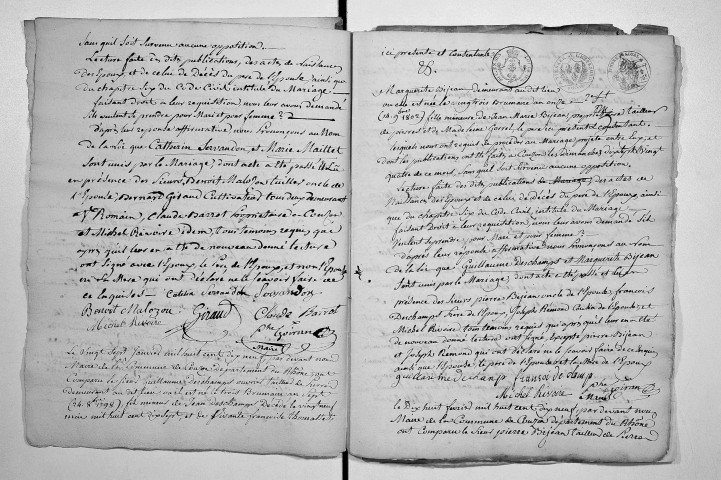 sans quil soit survenu aucune opposition.
Lecture faite des dites publications, des acte de Naissance
des Epoux et de celui de Décès du père de l'Epouse ainsi que
du chapitre Six du Code Civil intitulé du Mariage
faisant droit à leur requisition, nous leur avons demandé
s'ils veulent se prendre pour Mari et pour femme?
d'après leur reponse affirmative nous Prononçons au Nom
de la Loi que Catherin Servandon et Marie Maillet
Sont unis par le Mariage, dont acte a été passé
en présence des Sieurs Benoit Malozon oncle de
l'Epouse, Bernard Giraud Cultivateur tous deux demeurant
à St Romain, Claude Barrot Propriétaire à Couzon
et Michel Revoire idem, tous temoins requis, que
après qu'il leur en a été de nouveau donné lecture
ont Signé avec l'Epoux, le père de l'Epoux, et non l'Epouse
ni sa Mere qui ont déclaré ne le Savoir faire de
ce Enquises. Catherin Servandon Servandon
Benoit Malozon Giraud Claude Barrot
Michel Revoire
Maire
Le Vingt Sept Janvier mil huit cent dix neuf, par devant nous
Maire de la Commune de Couzon departement du Rhône, sont
Comparu le Sieur Guillaume Deschamps ouvrier Tailleur de pierre
demeurant au dit lieu, où il est né le trois Brumaire an Sept
(24. 8bre 1798), fils mineur de Jean Deschamps Décédé le vingt neuf
mil huit cent Sept, et de françoise
ici presente et consentante
&
Marguerite Bejean demeurant au dit lieu
ou elle est née le vingt trois Brumaire an onze
(14. 9bre 1802) fille mineure de Jean Marie Bejean, Tailleur
de pierres et de Madeleine Gorrel, ici présent et consentant
lesquels nous ont requis de procéder au Mariage projeté entre eux, et
dont les publications ont été faites à Couzon les dimanches dix sept et Vingt
quatre de ce mois, sans qu'il soit survenu aucune opposition,
Lecture faite des dites publications des actes de
Naissance des Epoux et de celui de décès du père de l'Epoux, ainsi
que du chapitre Six du Code Civil, intitulé du Mariage
faisant droit à leur requisition, nous leur avons demandé s'ils
veulent se prendre pour Mari et pour femme?
d'après leur réponse affirmative nous Prononçons au Nom
de la Loi que Guillaume Deschamps et Marguerite Bejean
Sont unis par le Mariage, dont acte a été passé en la
présence des Sieurs pierre Bejean oncle de l'Epouse, françois
Deschamps frère de l'Epoux, Joseph Remond Cousin de l'Epouse, et
Michel Revoire tous temoins requis, qui après qu'il leur en a été
de nouveau donné lecture ont Signé, excepté pierre Bejean
et Joseph Remond qui ont déclaré ne le Savoir faire de ce Enquis,
ainsi que l'Epouse, le père de l'Epouse et la Mere de l'Epoux
guillaume deschamp françois deschamp
Michel Revoire
Maire
Le Dix huit fevrier mil huit cent dix neuf, par devant nous
Maire de la Commune de Couzon departement du Rhône
ont Comparu le Sieur pierre Bejean Tailleur de Pierres